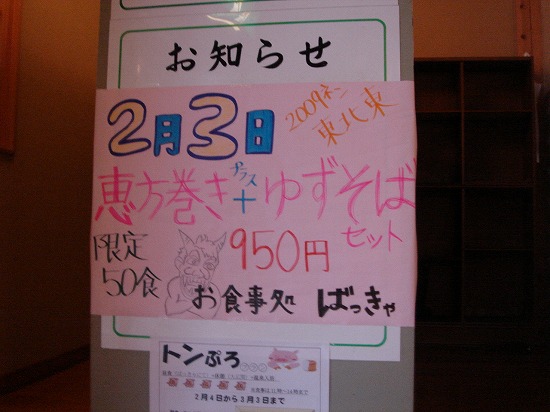 お知らせ
2009ネン
東北東
2月3日
恵方巻き
プラス
+
ゆずそば
セット
限定
50食
950円
お食事処 ばっきゃ
トンぷろ
2月4日から3月3日まで